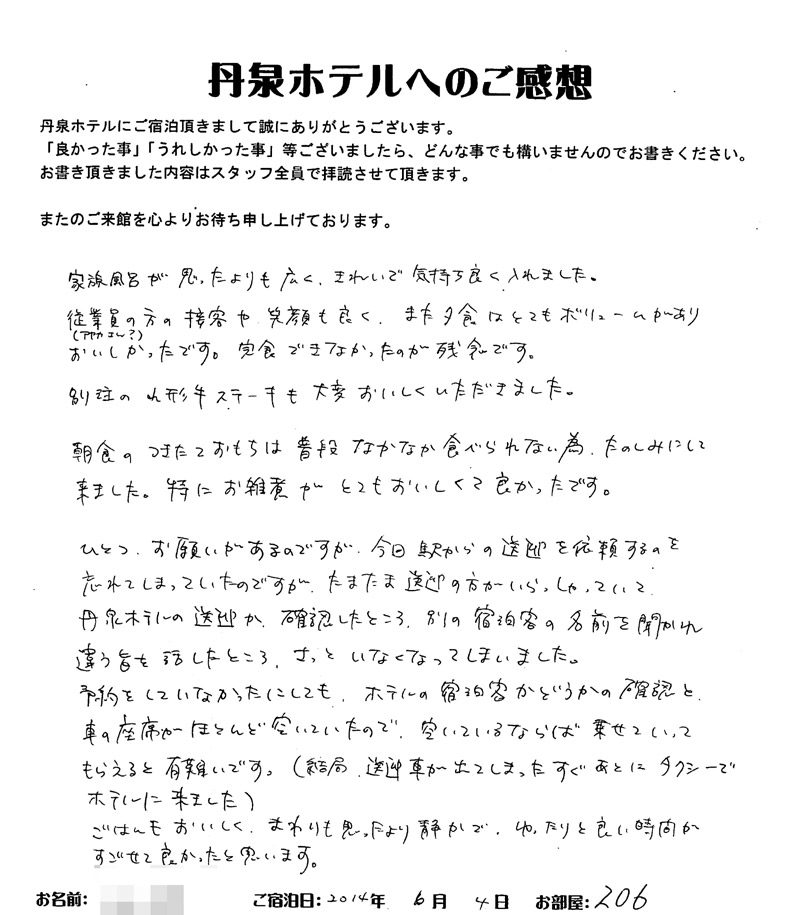 丹泉ホテルへのご感想
丹泉ホテルにご宿泊頂きまして誠にありがとうございます。
「良かった事」「うれしかった事」等ございましたら、どんな事でも構いませんのでお書きください。
お書き頂きました内容はスタッフ全員で拝読させて頂きます。
またのご来館を心よりお待ち申し上げております。
家族風呂が思ったよりも広く、きれいで気持ち良く入れました。
従業員の方の接客や笑顔も良く、また夕食はとてもボリュームがあり
(アヤカさん?)
おいしかったです。完食できなかったのが残念です。
別注の山形牛ステーキも大変おいしくいただきました。
朝食のつきたておもちは普段なかなか食べられない為、たのしみにして
来ました。特にお雑煮がとてもおいしくて良かったです。
ひとつ、お願いがあるのですが、今回駅からの送迎を依頼するのを
忘れてしまっていたのですが、たまたま送迎の方がいらっしゃっていて
丹泉ホテルの送迎か、確認したところ、別の宿泊客の名前を聞かれ
違う旨を話したところ、さっといなくなってしまいました。
予約をしていなかったにしても、ホテルの宿泊客かどうかの確認と、
車の座席がほとんど空いていたので、空いているならば乗せていって
もらえると有難いです。(結局、送迎車が出てしまったすぐあとにタクシーで
ホテルに来ました)
ごはんもおいしく、まわりも思ったより静かで、ゆったりと良い時間が
すごせて良かったと思います。
お名前: ご宿泊日:2014年 6月 4日 お部屋:206